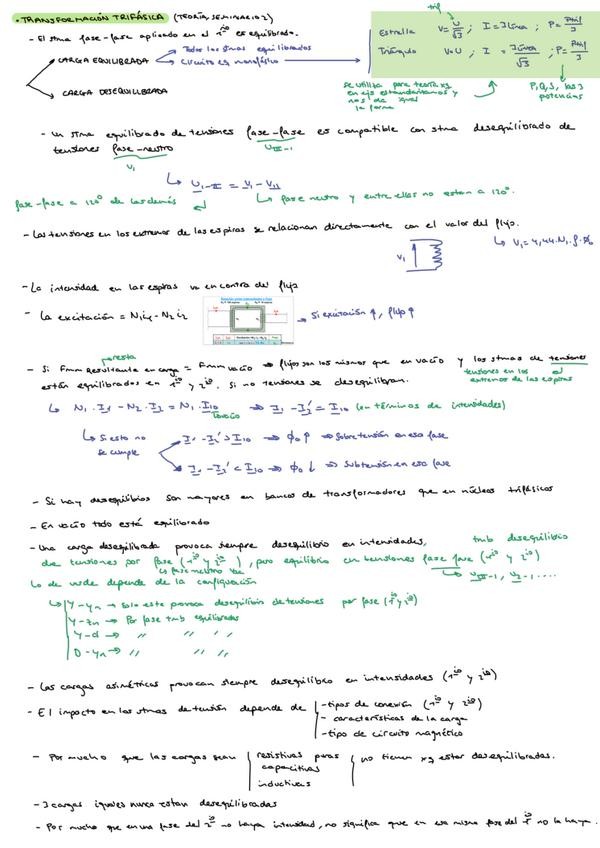 • TRANSFORMACIÓN TRIFÁSICA (TEORÍA SEMINARIO 2)
- El stma fase-fase aplicado en el 1ⁱᵒ es equilibrado.
CARGA EQUILIBRADA → Todos los stmas equilibrados
→ Circuito eq monofásico
CARGA DESEQUILIBRADA
trif
Estrella V = U/√3 ; I = I línea ; P = Ptrif/3
Triángulo V = U ; I = I línea/√3 ; P = Ptrif/3
se utiliza para teoría xq
en ejs estandarizamos y
nos da igual
la forma
P, Q, S, las 3
potencias
- Un stma equilibrado de tensiones fase-fase es compatible con stma desequilibrado de
tensiones fase-neutro
U II-I
V₁
U I-II = V I - V II
fase-fase a 120° de las demás
fase neutro y entre ellas no estan a 120°.
- Las tensiones en los extremos de las espiras se relacionan directamente con el valor del flujo.
V₁
V₁ = 4,44·N₁·f·ϕ₀
- La intensidad en las espiras va en contra del flujo
- La excitación = N₁i₁ - N₂i₂ → Si excitación ↑, flujo ↑
- Si Fmm resultante en carga = Fmm vacío → flujos son los mismos que en vacío y los stmas de tensiones
están equilibrados en 1ⁱᵒ y 2ⁱᵒ. Si no tensiones se desequilibran.
tensiones en los
extremos de las espiras
N₁·I₁ - N₂·I₂ = N₁·I₁₀ ⇒ I₁ - I₂' = I₁₀ (en términos de intensidades)
vacío
Si esto no
se cumple
I₁ - I₂' > I₁₀ ⇒ ϕ₀ ↑ ⇒ Sobretensión en esa fase
I₁ - I₂' < I₁₀ ⇒ ϕ₀ ↓ ⇒ Subtensión en esa fase
- Si hay desequilibrios son mayores en bancos de transformadores que en núcleos trifásicos
- En vacío todo está equilibrado
- Una carga desequilibrada provoca siempre desequilibrio en intensidades, tmb desequilibrio
de tensiones por fase (1ⁱᵒ y 2ⁱᵒ), pero equilibrio en tensiones fase fase (1ⁱᵒ y 2ⁱᵒ)
Lo de verde depende de la configuración
Y - yn → Solo este provoca desequilibrio de tensiones por fase (1ⁱᵒ y 2ⁱᵒ)
Y - zn → Por fase tmb equilibradas
Y - d → " " " "
D - yn → " " "
- Las cargas asimétricas provocan siempre desequilibrio en intensidades (1ⁱᵒ y 2ⁱᵒ)
- El impacto en los stmas de tensión depende de
- tipos de conexión (1ⁱᵒ y 2ⁱᵒ)
- características de la carga
- tipo de circuito magnético
- Por mucho que las cargas sean
resistivas puras
capacitivas
inductivas
no tienen xq estar desequilibradas.
- 3 cargas iguales nunca estan desequilibradas
- Por mucho que en una fase del 2ⁱᵒ no haya intensidad, no significa que en esa misma fase del 1ⁱᵒ no la haya.